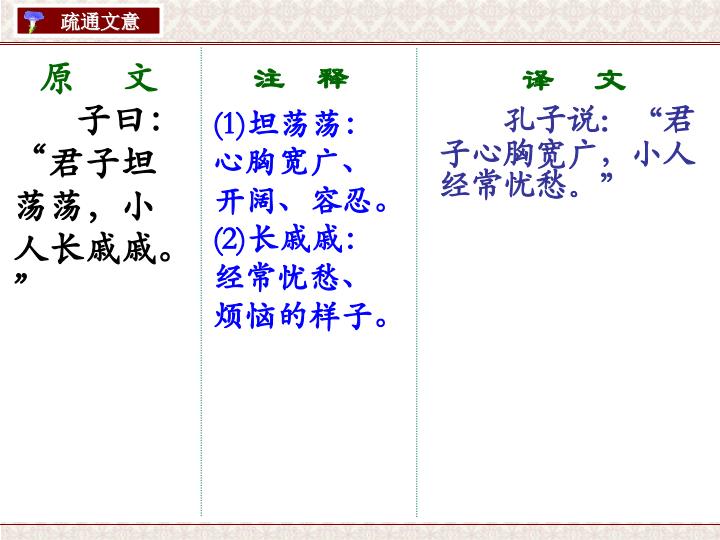 疏通文意
原 文
子曰：
“君子坦
荡荡，小
人长戚戚。
”
注 释
⑴坦荡荡：
心胸宽广、
开阔、容忍。
⑵长戚戚：
经常忧愁、
烦恼的样子。
译 文
孔子说：“君
子心胸宽广，小人
经常忧愁。”